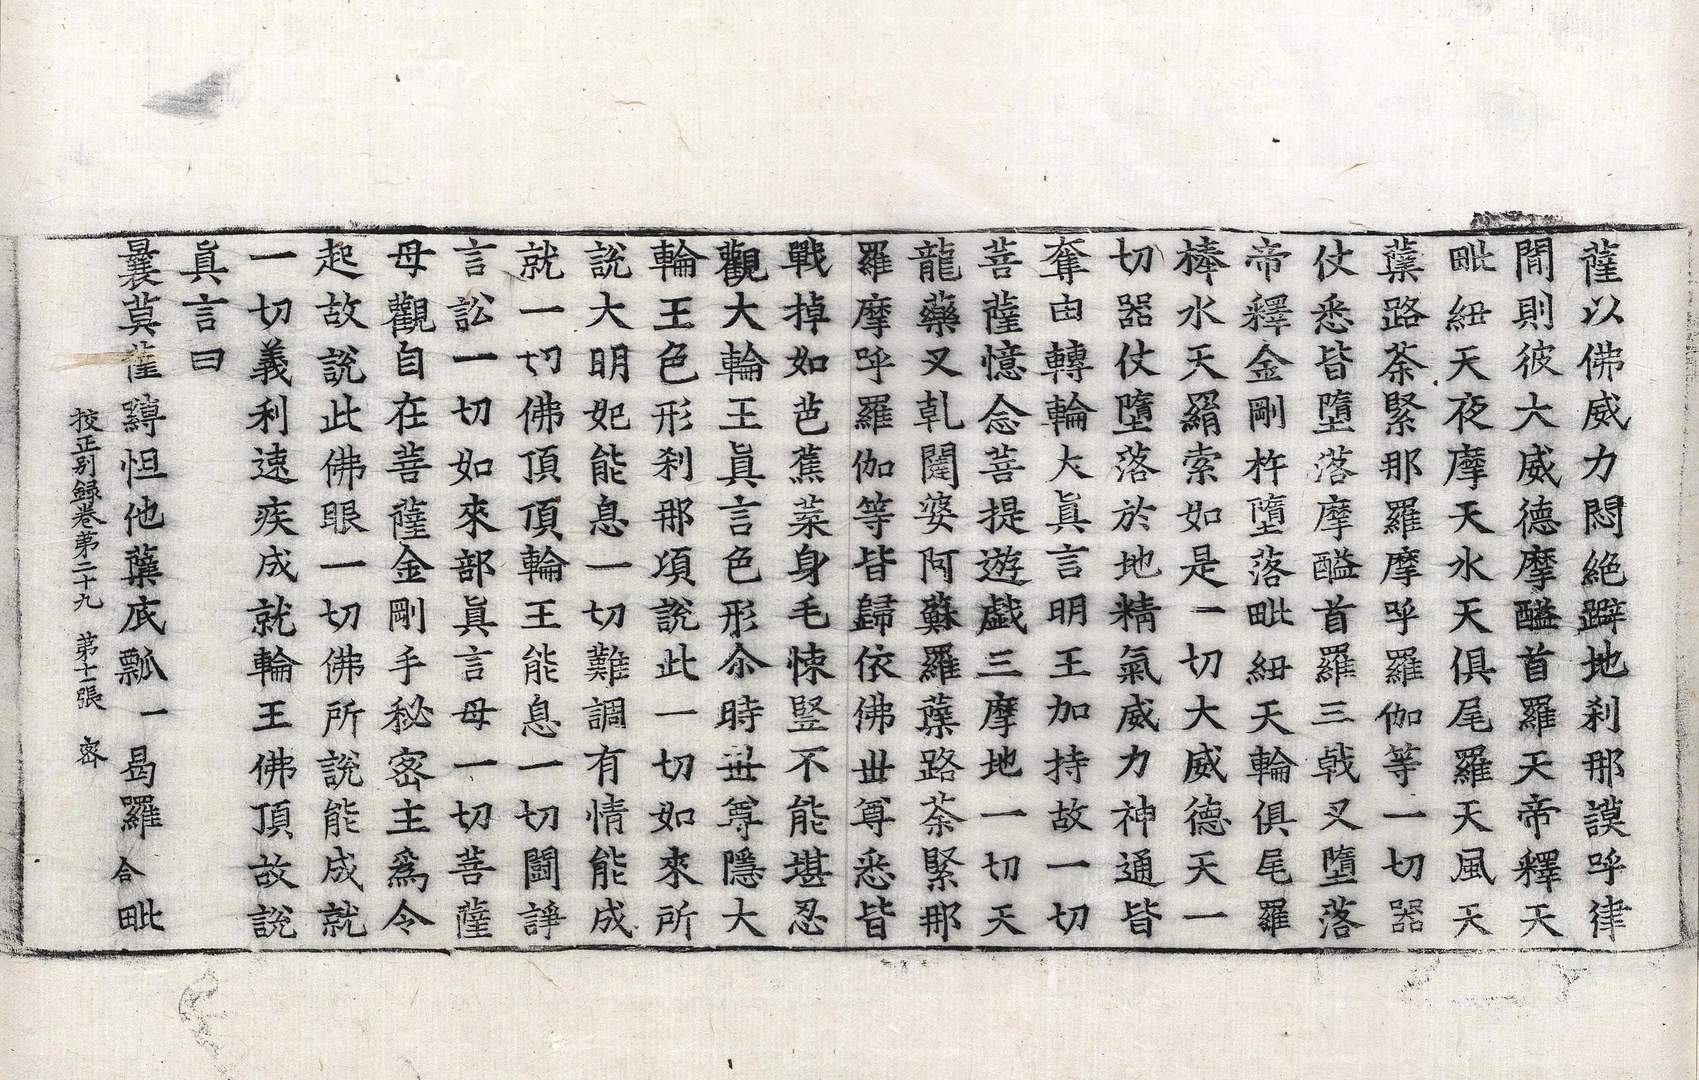 薩以佛威力悶絶躃地刹那謨呼律
閒則彼大威德摩醯首羅天帝釋天
毗紐天夜摩天水天俱尾羅天風天
蘖路荼緊那羅摩呼羅伽等一切器
仗悉皆墮落摩醯首羅三戟叉墮落
帝釋金剛杵墮落毗紐天輪俱尾羅
棒水天羂索如是一切大威德天一
切器仗墮落於地精氣威力神通皆
奪由轉輪大眞言明王加持故一切
菩薩憶念菩提遊戲三摩地一切天
龍藥叉乹闥婆阿蘇羅蘖路荼緊那
羅摩呼羅伽等皆歸依佛世尊悉皆
戰掉如芭蕉葉身毛悚竪不能堪忍
觀大輪王眞言色形尒時世尊隱大
輪王色形刹那頃說此一切如來所
說大明妃能息一切難調有情能成
就一切佛頂頂輪王能息一切鬪諍
言訟一切如來部眞言母一切菩薩
母觀自在菩薩金剛手秘密主爲令
起故說此佛眼一切佛所說能成就
一切義利速疾成就輪王佛頂故說
眞言曰
曩莫薩嚩怛他蘖底瓢一曷羅合毗
校正別録卷第二十九　第十二張　密